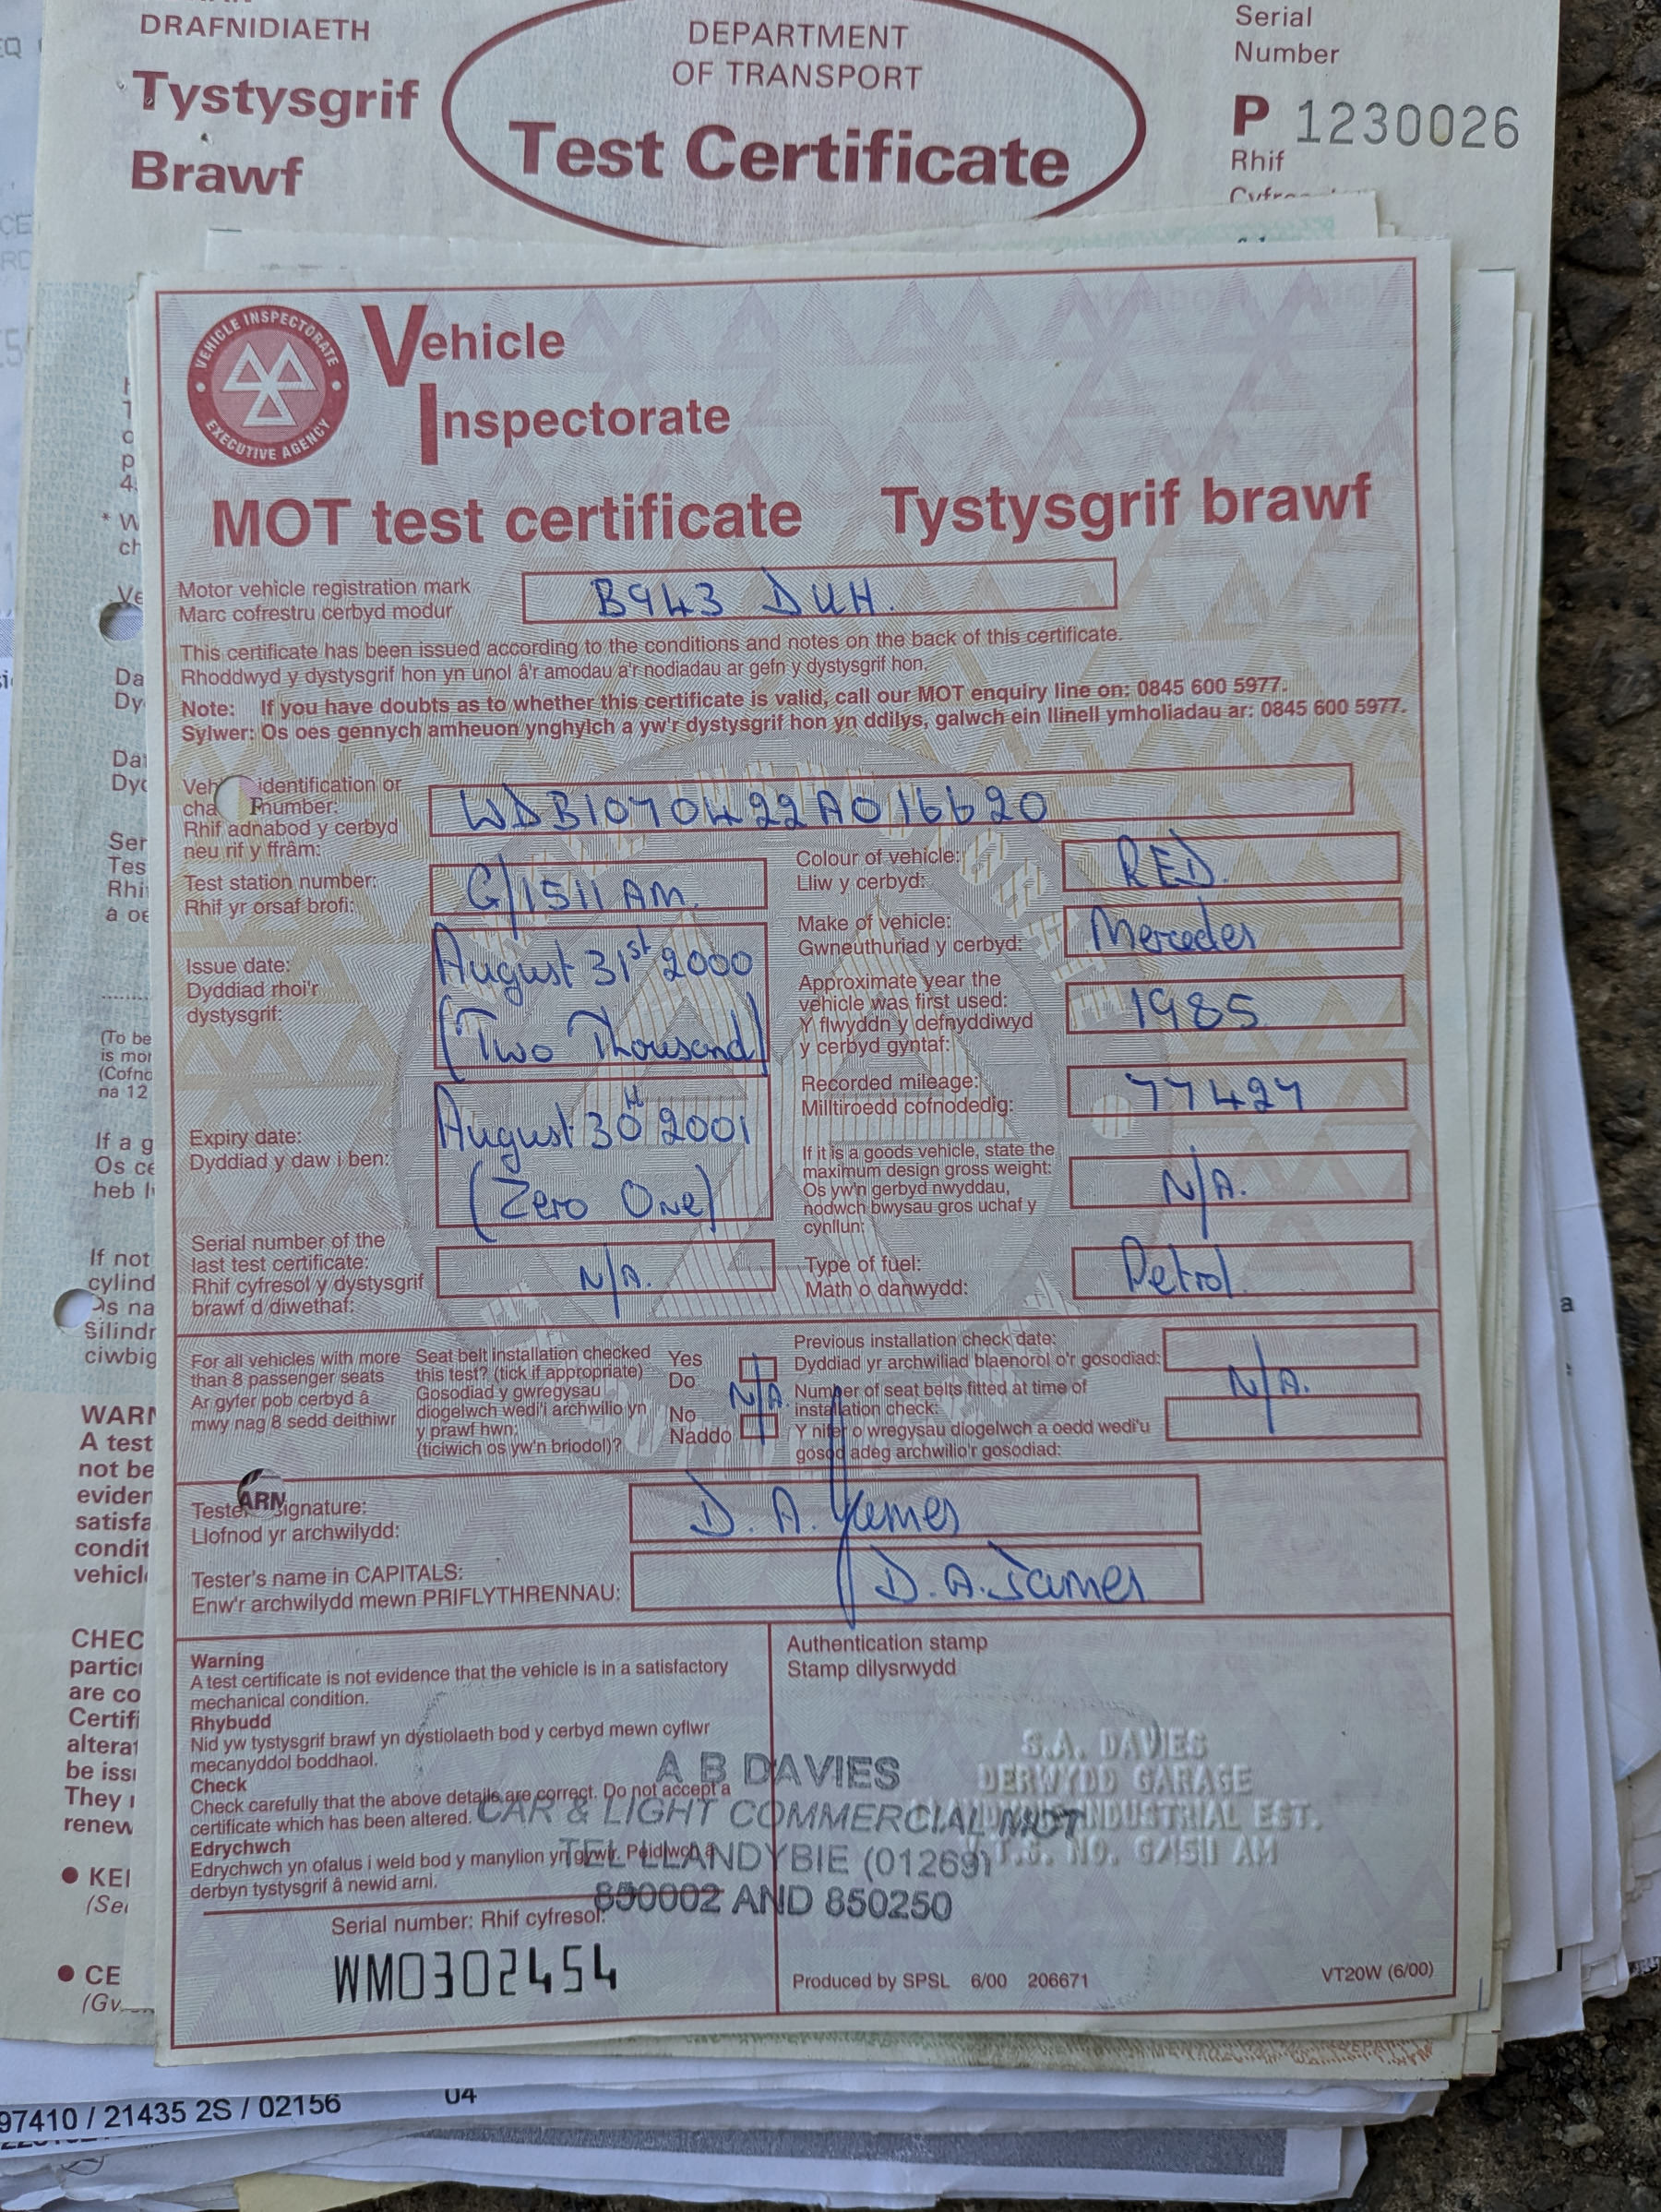 DRAFNIDIAETH
Tystysgrif
Brawf
DEPARTMENT
OF TRANSPORT
Test Certificate
Serial
Number
P 1230026
Rhif
VEHICLE INSPECTORATE
EXECUTIVE AGENCY
Vehicle
Inspectorate
MOT test certificate Tystysgrif brawf
Motor vehicle registration mark
Marc cofrestru cerbyd modur
B943 DUH.
This certificate has been issued according to the conditions and notes on the back of this certificate.
Rhoddwyd y dystysgrif hon yn unol â'r amodau a'r nodiadau ar gefn y dystysgrif hon.
Note: If you have doubts as to whether this certificate is valid, call our MOT enquiry line on: 0845 600 5977.
Sylwer: Os oes gennych amheuon ynghylch a yw'r dystysgrif hon yn ddilys, galwch ein llinell ymholiadau ar: 0845 600 5977.
Veh identification or
cha number:
Rhif adnabod y cerbyd
neu rif y ffrâm:
WDB1070422A016620
Test station number:
Rhif yr orsaf brofi:
G/1511 AM
Issue date:
Dyddiad rhoi'r
dystysgrif:
August 31st 2000
(Two Thousand)
Expiry date:
Dyddiad y daw i ben:
August 30th 2001
(Zero One)
Serial number of the
last test certificate:
Rhif cyfresol y dystysgrif
brawf d diwethaf:
N/A.
Colour of vehicle:
Lliw y cerbyd:
RED.
Make of vehicle:
Gwneuthuriad y cerbyd:
Mercedes
Approximate year the
vehicle was first used:
Y flwyddn y defnyddiwyd
y cerbyd gyntaf:
1985
Recorded mileage:
Milltiroedd cofnodedig:
77427
If it is a goods vehicle, state the
maximum design gross weight:
Os yw'n gerbyd nwyddau,
nodwch bwysau gros uchaf y
cynllun:
N/A.
Type of fuel:
Math o danwydd:
Petrol.
For all vehicles with more
than 8 passenger seats
Ar gyfer pob cerbyd â
mwy nag 8 sedd deithiwr
Seat belt installation checked
this test? (tick if appropriate)
Gosodiad y gwregysau
diogelwch wedi'i archwilio yn
y prawf hwn:
(ticiwich os yw'n briodol)?
Yes
Do
No
Naddo
N/A.
Previous installation check date:
Dyddiad yr archwiliad blaenorol o'r gosodiad:
Number of seat belts fitted at time of
installation check:
Y nifer o wregysau diogelwch a oedd wedi'u
gosod adeg archwilio'r gosodiad:
N/A.
Tester signature:
Llofnod yr archwilydd:
D. A. James
Tester's name in CAPITALS:
Enw'r archwilydd mewn PRIFLYTHRENNAU:
D. A. James
Warning
A test certificate is not evidence that the vehicle is in a satisfactory
mechanical condition.
Rhybudd
Nid yw tystysgrif brawf yn dystiolaeth bod y cerbyd mewn cyflwr
mecanyddol boddhaol.
Check
Check carefully that the above details are correct. Do not accept a
certificate which has been altered.
Edrychwch
Edrychwch yn ofalus i weld bod y manylion yn glywir. Peidiwch â
derbyn tystysgrif â newid arni.
Authentication stamp
Stamp dilysrwydd
A B DAVIES
CAR & LIGHT COMMERCIAL MOT
TEL LLANDYBIE (01269)
850002 AND 850250
S.A. DAVIES
DERWYDD GARAGE
INDUSTRIAL EST.
NO. G/1511 AM
Serial number: Rhif cyfresol:
WM0302454
Produced by SPSL 6/00 206671
VT20W (6/00)
97410 / 21435 2S / 02156
04